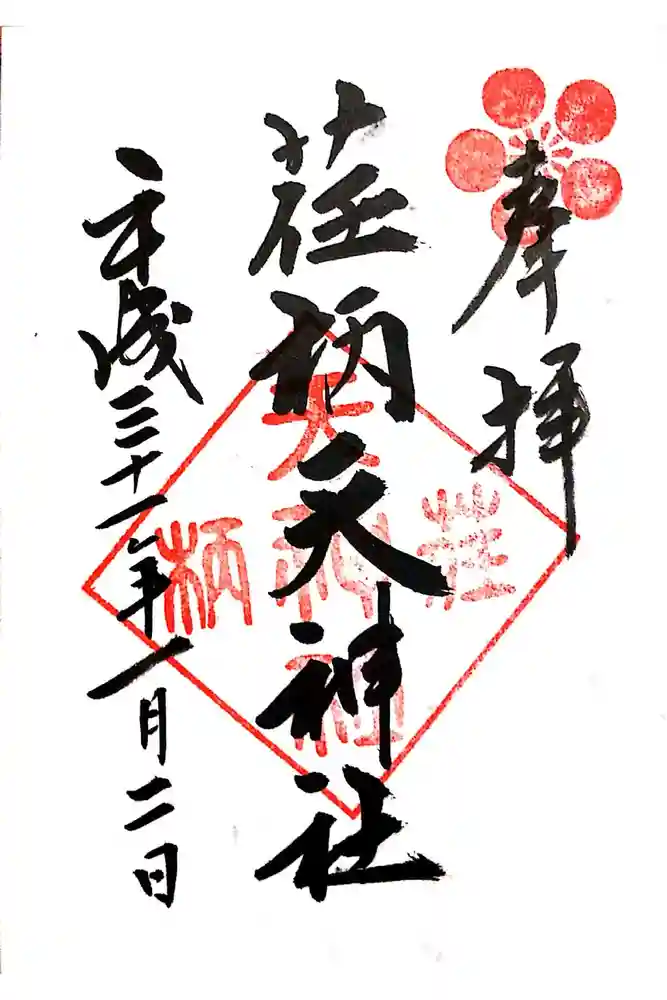 奉拝
荏柄天神社
平成三十一年一月二日
荏柄天神社